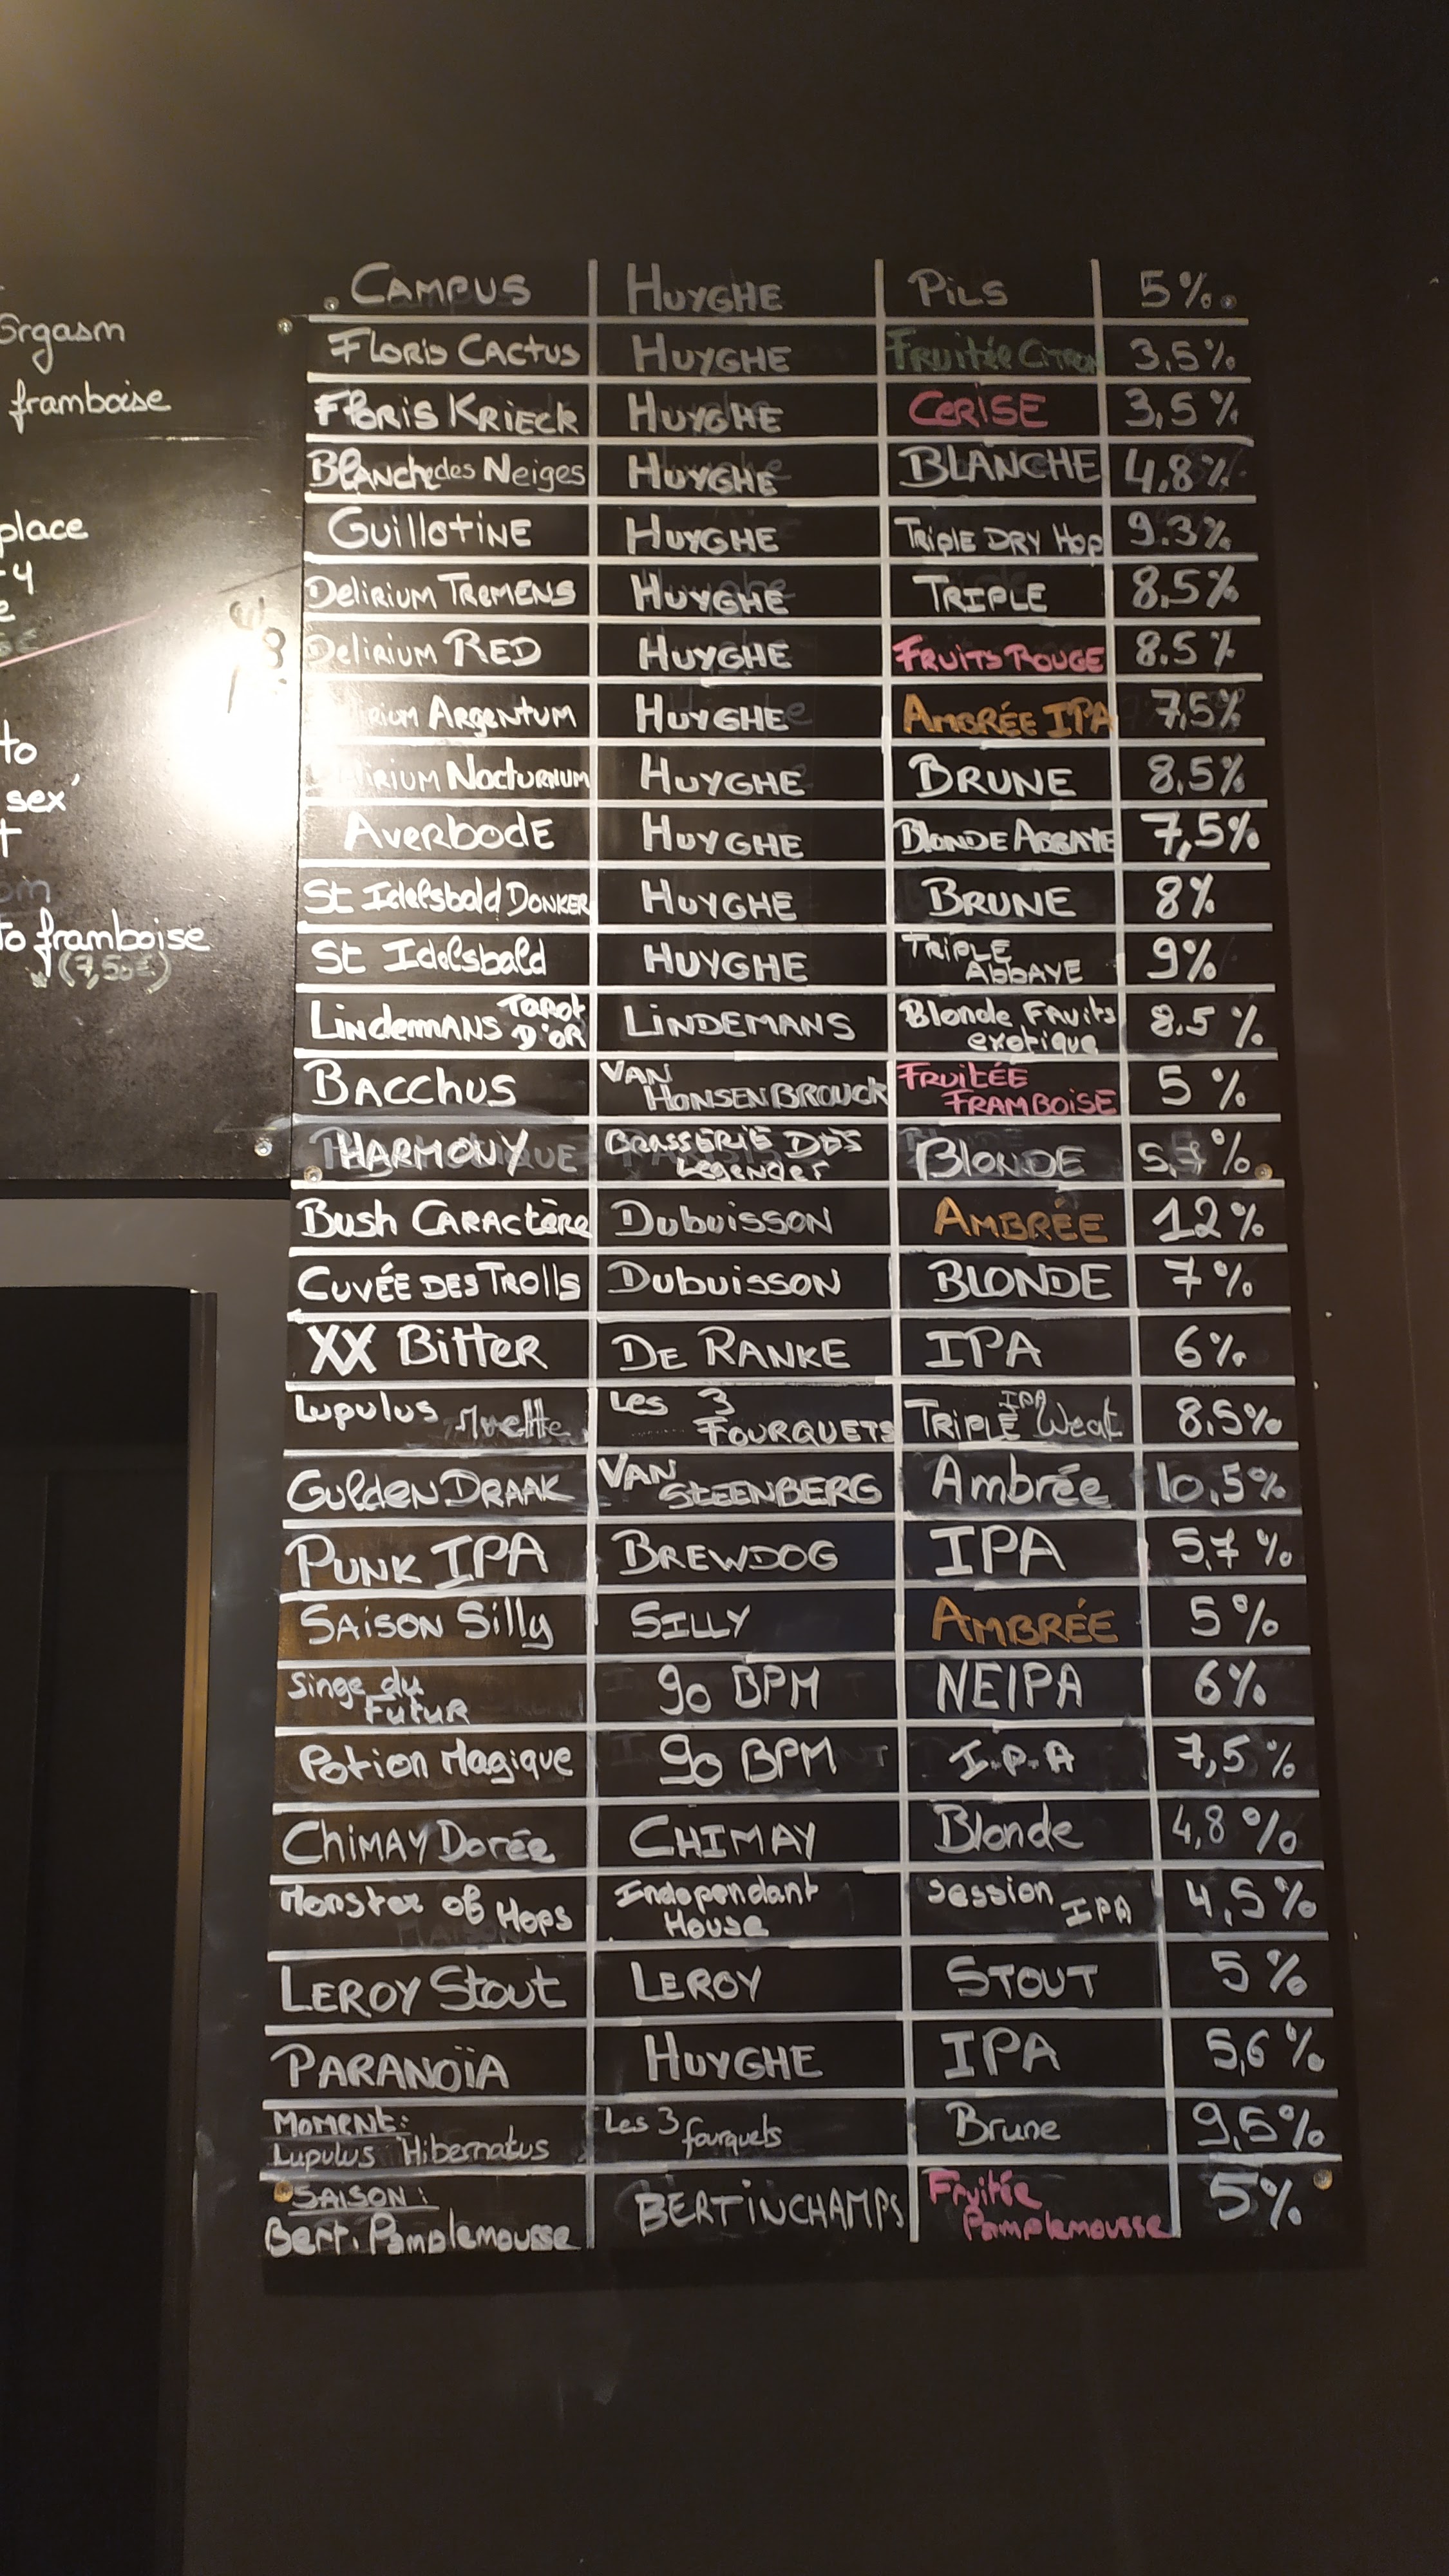 Orgasm
framboise
place
4
e
to
sex'
t
om
To framboise
(7,50€)
CAMPUS HUYGHE PiLS 5%
FLORIS CACTUS HUYGHE FRUITÉE CITRON 3,5%
FLORIS KRIECK HUYGHE CERISE 3,5%
BLANCHE des Neiges HUYGHE BLANCHE 4,8%
GUILLOTINE HUYGHE TRIPLE DRY HOP 9.3%
DELIRIUM TREMENS HUYGHE TRIPLE 8,5%
DELIRIUM RED HUYGHE FRUITS ROUGE 8.5%
RIUM ARGENTUM HUYGHE AMBRÉE IPA 7,5%
IRIUM NOCTURNUM HUYGHE BRUNE 8,5%
AVERBODE HUYGHE BLONDE ABBAYE 7,5%
St Idelsbald DONKER HUYGHE BRUNE 8%
St Idelsbald HUYGHE TRIPLE ABBAYE 9%
LindemANS TAROT D'OR LINDEMANS Blonde Fruits exotique 8.5%
BACCHUS VAN HONSENBROUCK FRUITÉE FRAMBOISE 5%
HARMONY BRASSERIE DES Legender BLONDE %
BUSH CARACTÈRE DUBUISSON AMBRÉE 12%
CUVÉE DES TROLLS DUBUISSON BLONDE 7%
XX Bitter DE RANKE IPA 6%
Lupulus Les 3 FOURQUETS TRIPLE IPA Weat 8,5%
GULDEN DRAAK VAN STEENBERG Ambrée 10,5%
PUNK IPA BREWDOG IPA 5,7%
SAISON Silly SILLY AMBRÉE 5%
Singe du FUTUR 90 BPM NEIPA 6%
Potion Magique 90 BPM I.P.A 7,5%
CHIMAY Dorée CHIMAY Blonde 4,8%
Monster of Hops Independant House Session IPA 4,5%
LEROY Stout LEROY STOUT 5%
PARANOÏA HUYGHE IPA 5,6%
MOMENT: Lupulus Hibernatus Les 3 fourquets Brune 9,5%
SAISON: Bert. Pamplemousse BERTINCHAMPS Fruitée Pamplemousse 5%